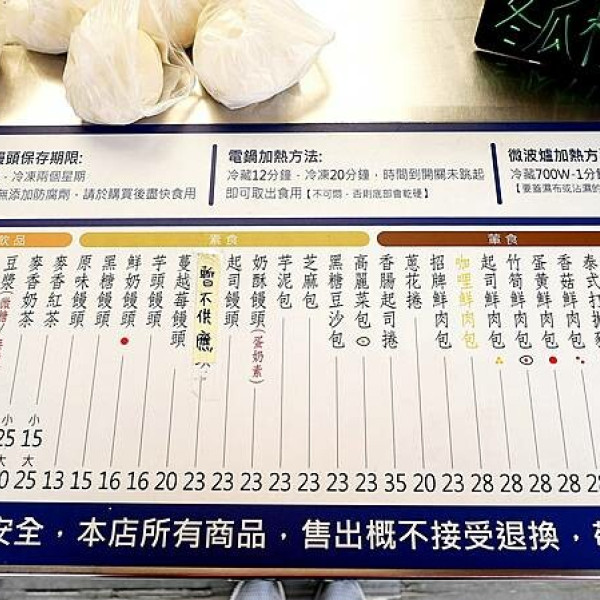 冬瓜
饅頭保存期限:
、冷凍兩個星期
無添加防腐劑，請於購買後盡快食用
電鍋加熱方法:
冷藏12分鐘、冷凍20分鐘，時間到開關未跳起
即可取出食用【不可悶，否則底部會乾硬】
微波爐加熱方
冷藏700W-1分
【要蓋濕布或沾濕的
飲品
素食
葷食
豆漿 微糖 小 25 大
麥香奶茶 小 15 大 25
麥香紅茶 13
原味饅頭 15
黑糖饅頭 16
鮮奶饅頭 16
芋頭饅頭 20
蔓越莓饅頭 23
暫不供應 23
起司饅頭 23
奶酥饅頭(蛋奶素) 23
芋泥包 23
芝麻包 23
黑糖豆沙包 23
高麗菜包 23
香腸起司捲 35
蔥花捲 20
招牌鮮肉包 23
咖哩鮮肉包 28
起司鮮肉包 28
竹筍鮮肉包 28
蛋黃鮮肉包 28
香菇鮮肉包 28
泰式打拋
安全，本店所有商品，售出概不接受退換，